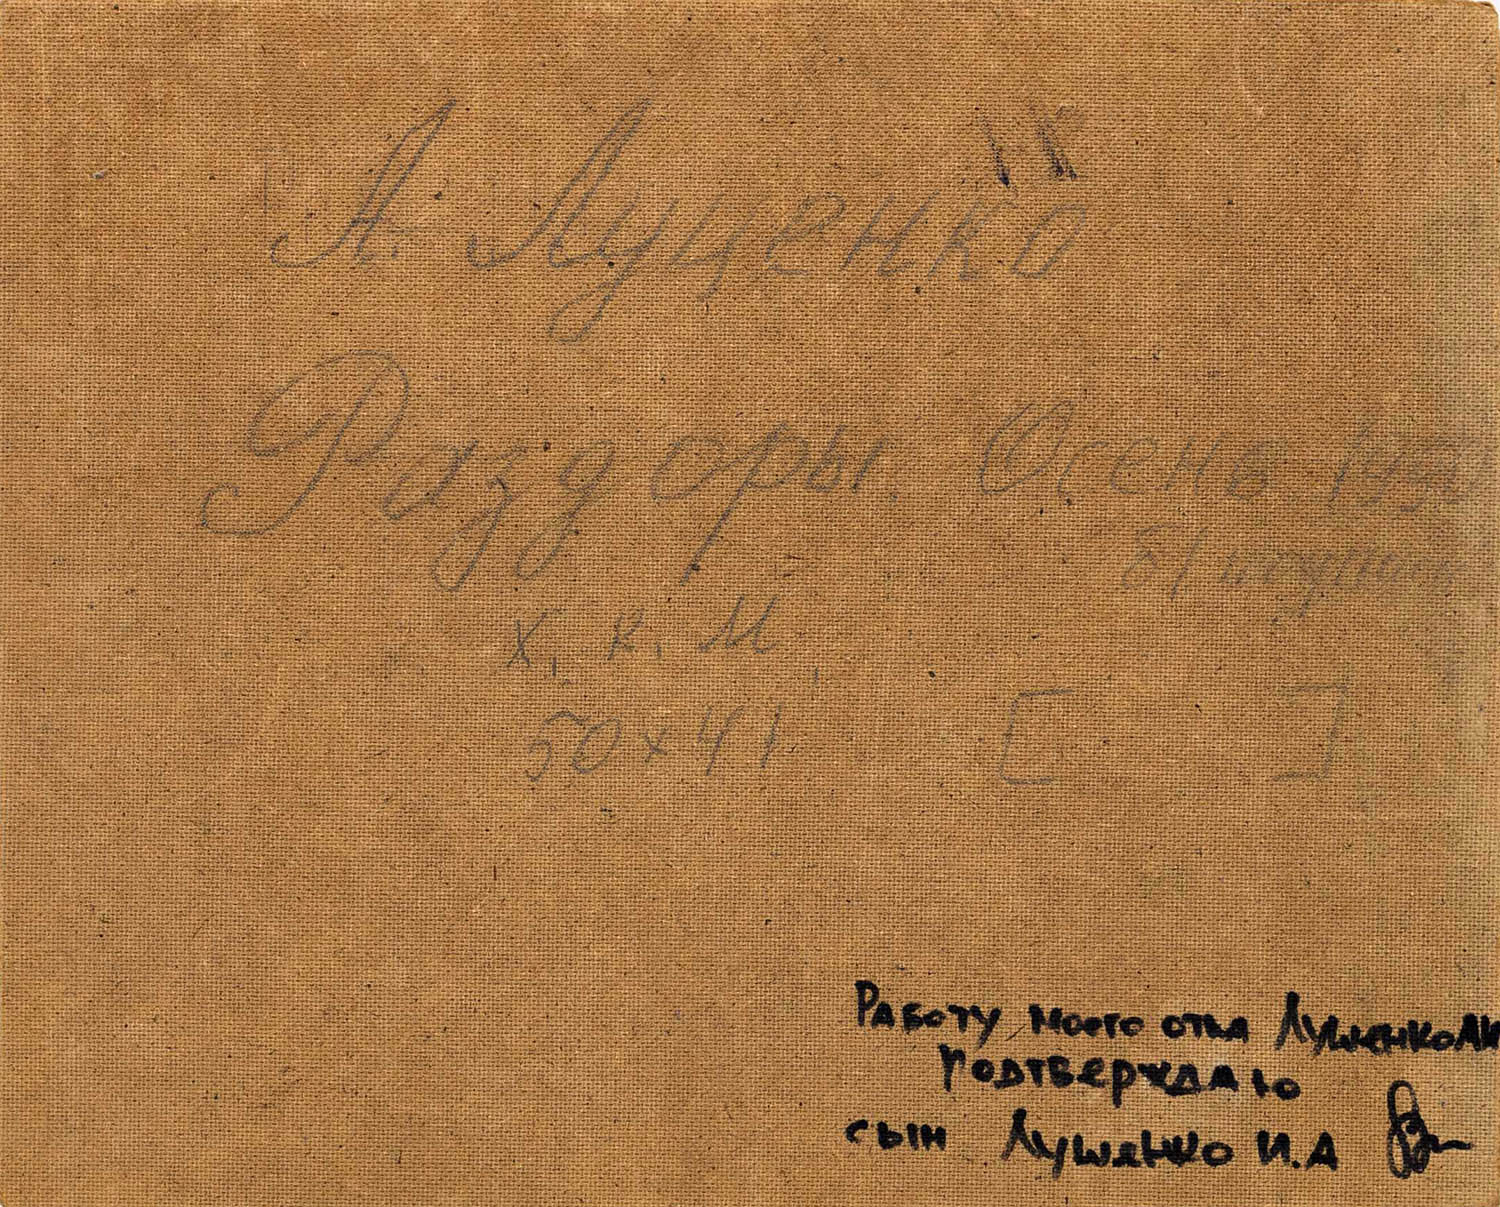 А. Луценко
Раздоры. Осень
б/
х. к. м
50 х 41
[ ]
Работу моего отца Луценко АИ
подтверждаю
сын Луценко И.А